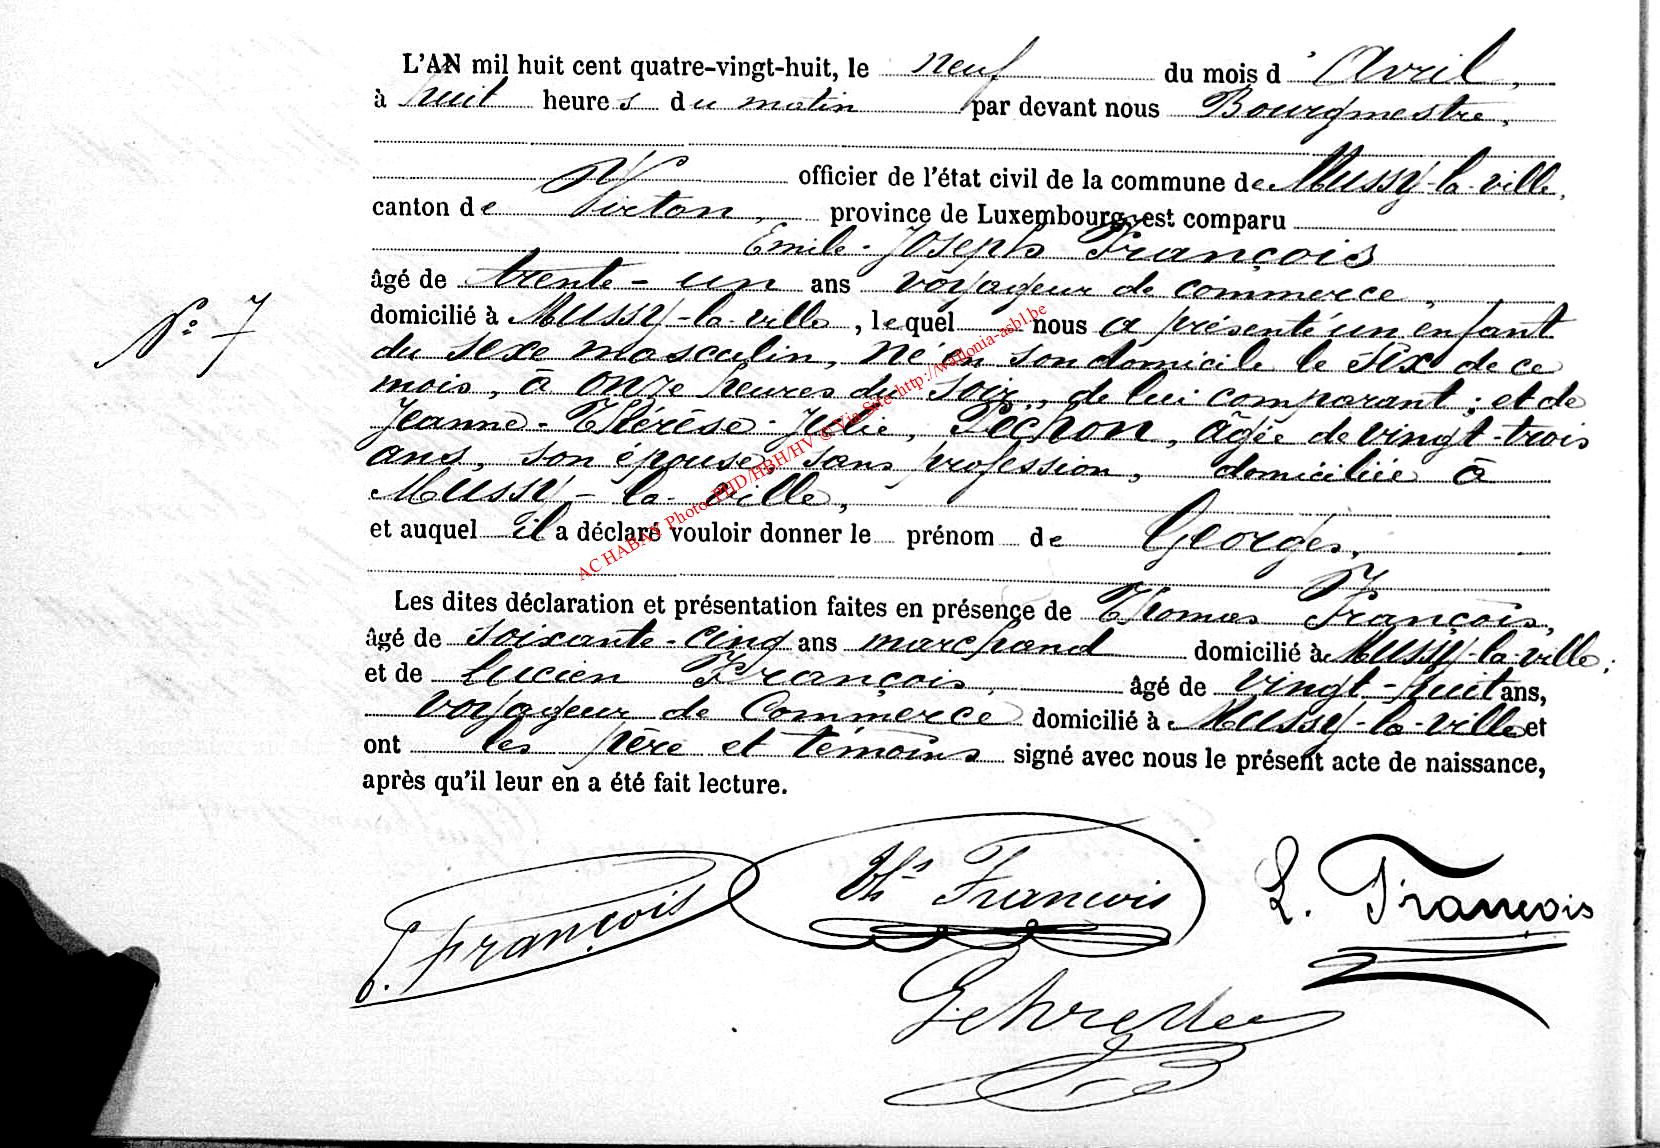 L'AN mil huit cent quatre-vingt-huit, le neuf du mois d'Avril,
à huit heures du matin par devant nous Bourgmestre,
officier de l'état civil de la commune de Mussy-la-ville,
canton de Virton, province de Luxembourg, est comparu
Emile-Joseph François
âgé de trente-un ans voyageur de commerce,
domicilié à Mussy-la-ville, lequel nous a présenté un enfant
N° 7
du sexe masculin, né en son domicile le six de ce
mois, à onze heures du soir, de lui comparant; et de
Jeanne-Thérèse-Julie, Péchon, âgée de vingt-trois
ans, son épouse, sans profession, domiciliée à
Mussy-la-ville,
et auquel il a déclaré vouloir donner le prénom de Georges,
Les dites déclaration et présentation faites en présence de Thomas François,
âgé de soixante-cinq ans marchand domicilié à Mussy-la-ville;
et de Lucien François, âgé de vingt-huit ans,
voyageur de Commerce domicilié à Mussy-la-ville et
ont les père et témoins signé avec nous le présent acte de naissance,
après qu'il leur en a été fait lecture.
AC HABAY Photo: PHD/HBH/HV © Via Site http://wallonia-asbl.be
E. François
Ths François
L. François